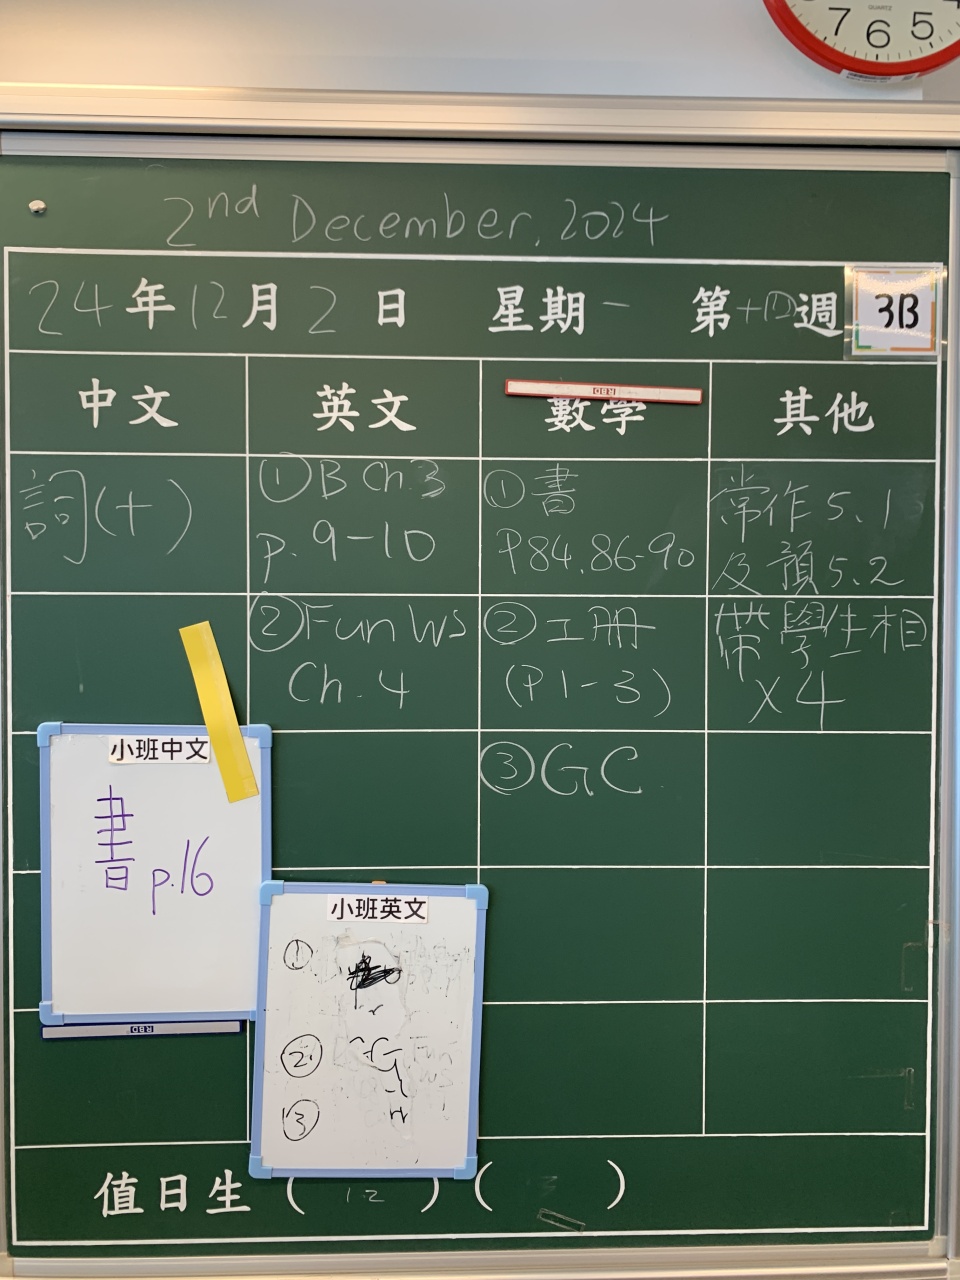 QUARTZ
7 6 5
2nd December, 2024
24年12月2日 星期一 第十四週 3B
中文 英文 數學 其他
RBD
詞(十)
①B Ch.3
p. 9-10
①書
P84, 86-90
常作 5.1
及預 5.2
②Fun WS
Ch. 4
②工冊
(P1-3)
帶學生相
x4
③GC
小班中文
書 p.16
RBD
小班英文
①
②
③
值日生 ( 12 ) ( )